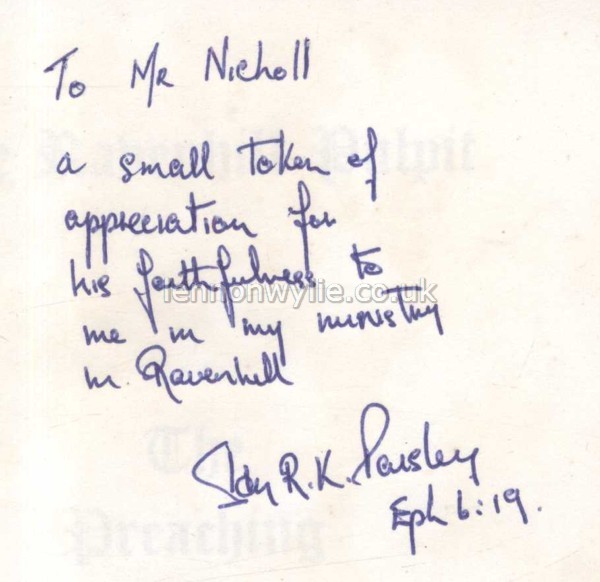 To Mr Nicholl
a small token of
appreciation for
his faithfulness to
lennonwylie.co.uk
me in my ministry
in Ravenhill
Ian R. K. Paisley
Eph 6:19.
The Ravenhill Pulpit
The
Preaching